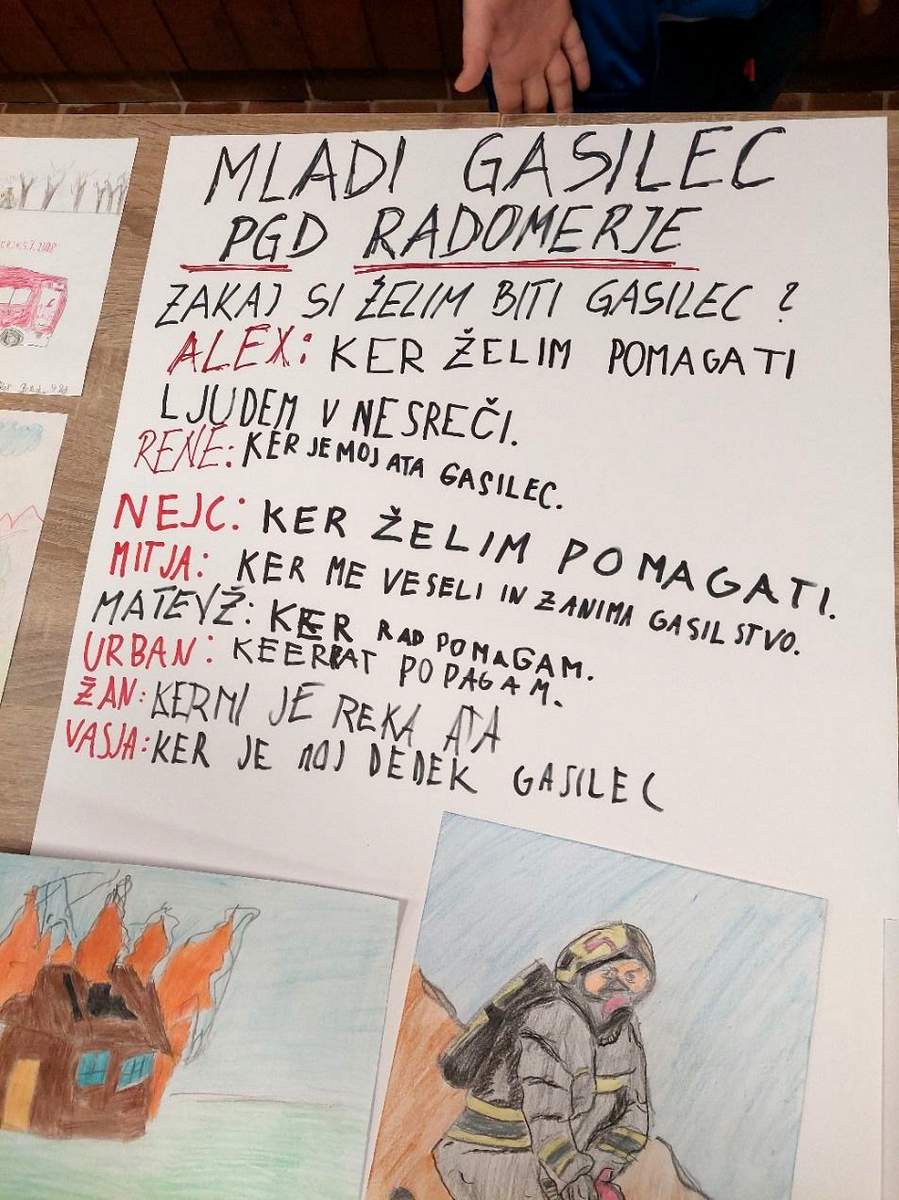 MLADI GASILEC
PGD RADOMERJE
ZAKAJ SI ŽELIM BITI GASILEC ?
ALEX: KER ŽELIM POMAGATI
LJUDEM V NESREČI.
RENE: KER JE MOJ ATA GASILEC.
NEJC: KER ŽELIM POMAGATI.
MITJA: KER ME VESELI IN ZANIMA GASILSTVO.
MATEVŽ: KER RAD POMAGAM.
URBAN: KEERRAT POPAGAM.
ŽAN: KERMI JE REKA ATA
VASJA: KER JE MOJ DEDEK GASILEC